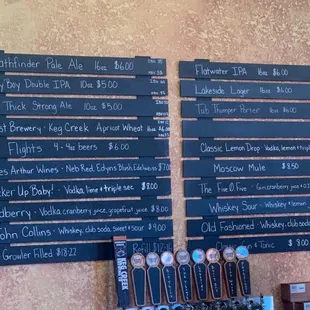 athfinder Pale Ale 16oz $6.00
y Boy Double IPA 10oz $5.00
Thick Strong Ale 10oz $5.00
st Brewery - Keg Creek Apricot Wheat
Flights 4 - 4oz beers $6.00
es Arthur Wines - Neb Red, Edyns Blush, Edelweiss $7.00
ker Up Baby! - Vodka, lime + triple sec $8.00
dberry - Vodka, cranberry juice, grapefruit juice $8.00
ohn Collins - Whiskey, club soda, sweet + sour $9.00
Growler Filled $18.22
Refill
Flatwater IPA 16oz $6.00
Lakeside Lager 16oz $6.00
Tub Thumper Porter 16oz $6.00
Classic Lemon Drop - Vodka, lemon + tr
Moscow Mule $8.50
The Five O Five - Gin, cranberry juice
Whiskey Sour - Whiskey + lemon
Old Fashioned - Whiskey, club soda
+ Tonic $8.00
KEG CREEK